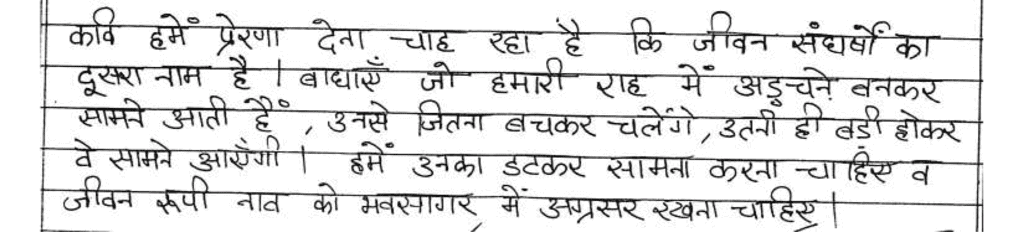 कवि हमें प्रेरणा देना चाह रहा है कि जीवन संघर्षों का
दूसरा नाम है । बाधाएँ जो हमारी राह में अड़चने बनकर
सामने आती हैं , उनसे जितना बचकर चलेंगे , उतनी ही बड़ी होकर
वे सामने आएँगी । हमें उनका डटकर सामना करना चाहिए व
जीवन रूपी नाव को भवसागर में अग्रसर रखना चाहिए ।